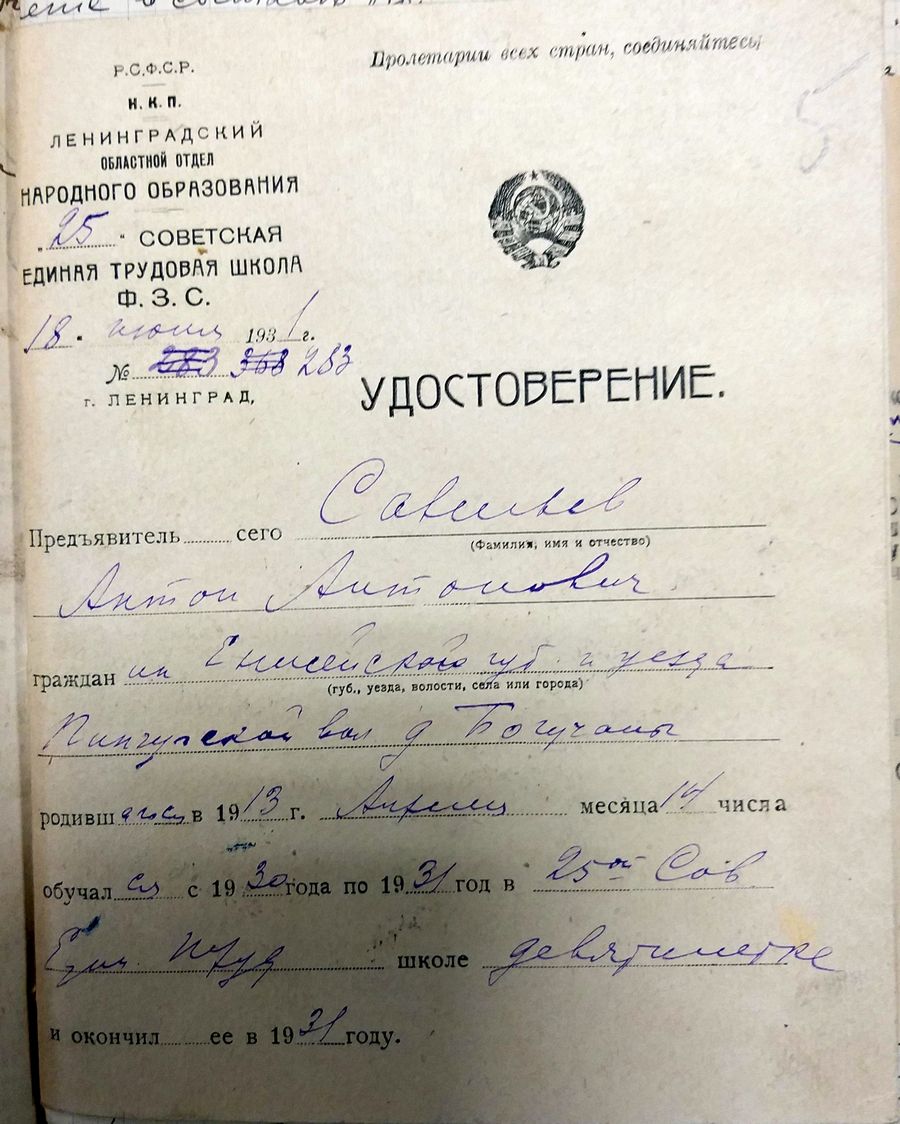 Пролетарии всех стран, соединяйтесь!
5
Р.С.Ф.С.Р.
Н. К. П.
ЛЕНИНГРАДСКИЙ
ОБЛАСТНОЙ ОТДЕЛ
НАРОДНОГО ОБРАЗОВАНИЯ
„25“ СОВЕТСКАЯ
ЕДИНАЯ ТРУДОВАЯ ШКОЛА
Ф. З. С.
18. июня 1931 г.
№ 283 368 283
г. ЛЕНИНГРАД,
УДОСТОВЕРЕНИЕ.
Предъявитель сего Савельев
(Фамилия, имя и отчество)
Антон Антонович.
гражданин Енисейского губ. и уезда
(губ., уезда, волости, села или города)
Пинчугской вол д Богучаны
родившегося в 1913 г. Апреля месяца 14 числа
обучался с 1930 года по 1931 год в 25ой Сов
Един Труд школе девятилетке
и окончил ее в 1931 году.